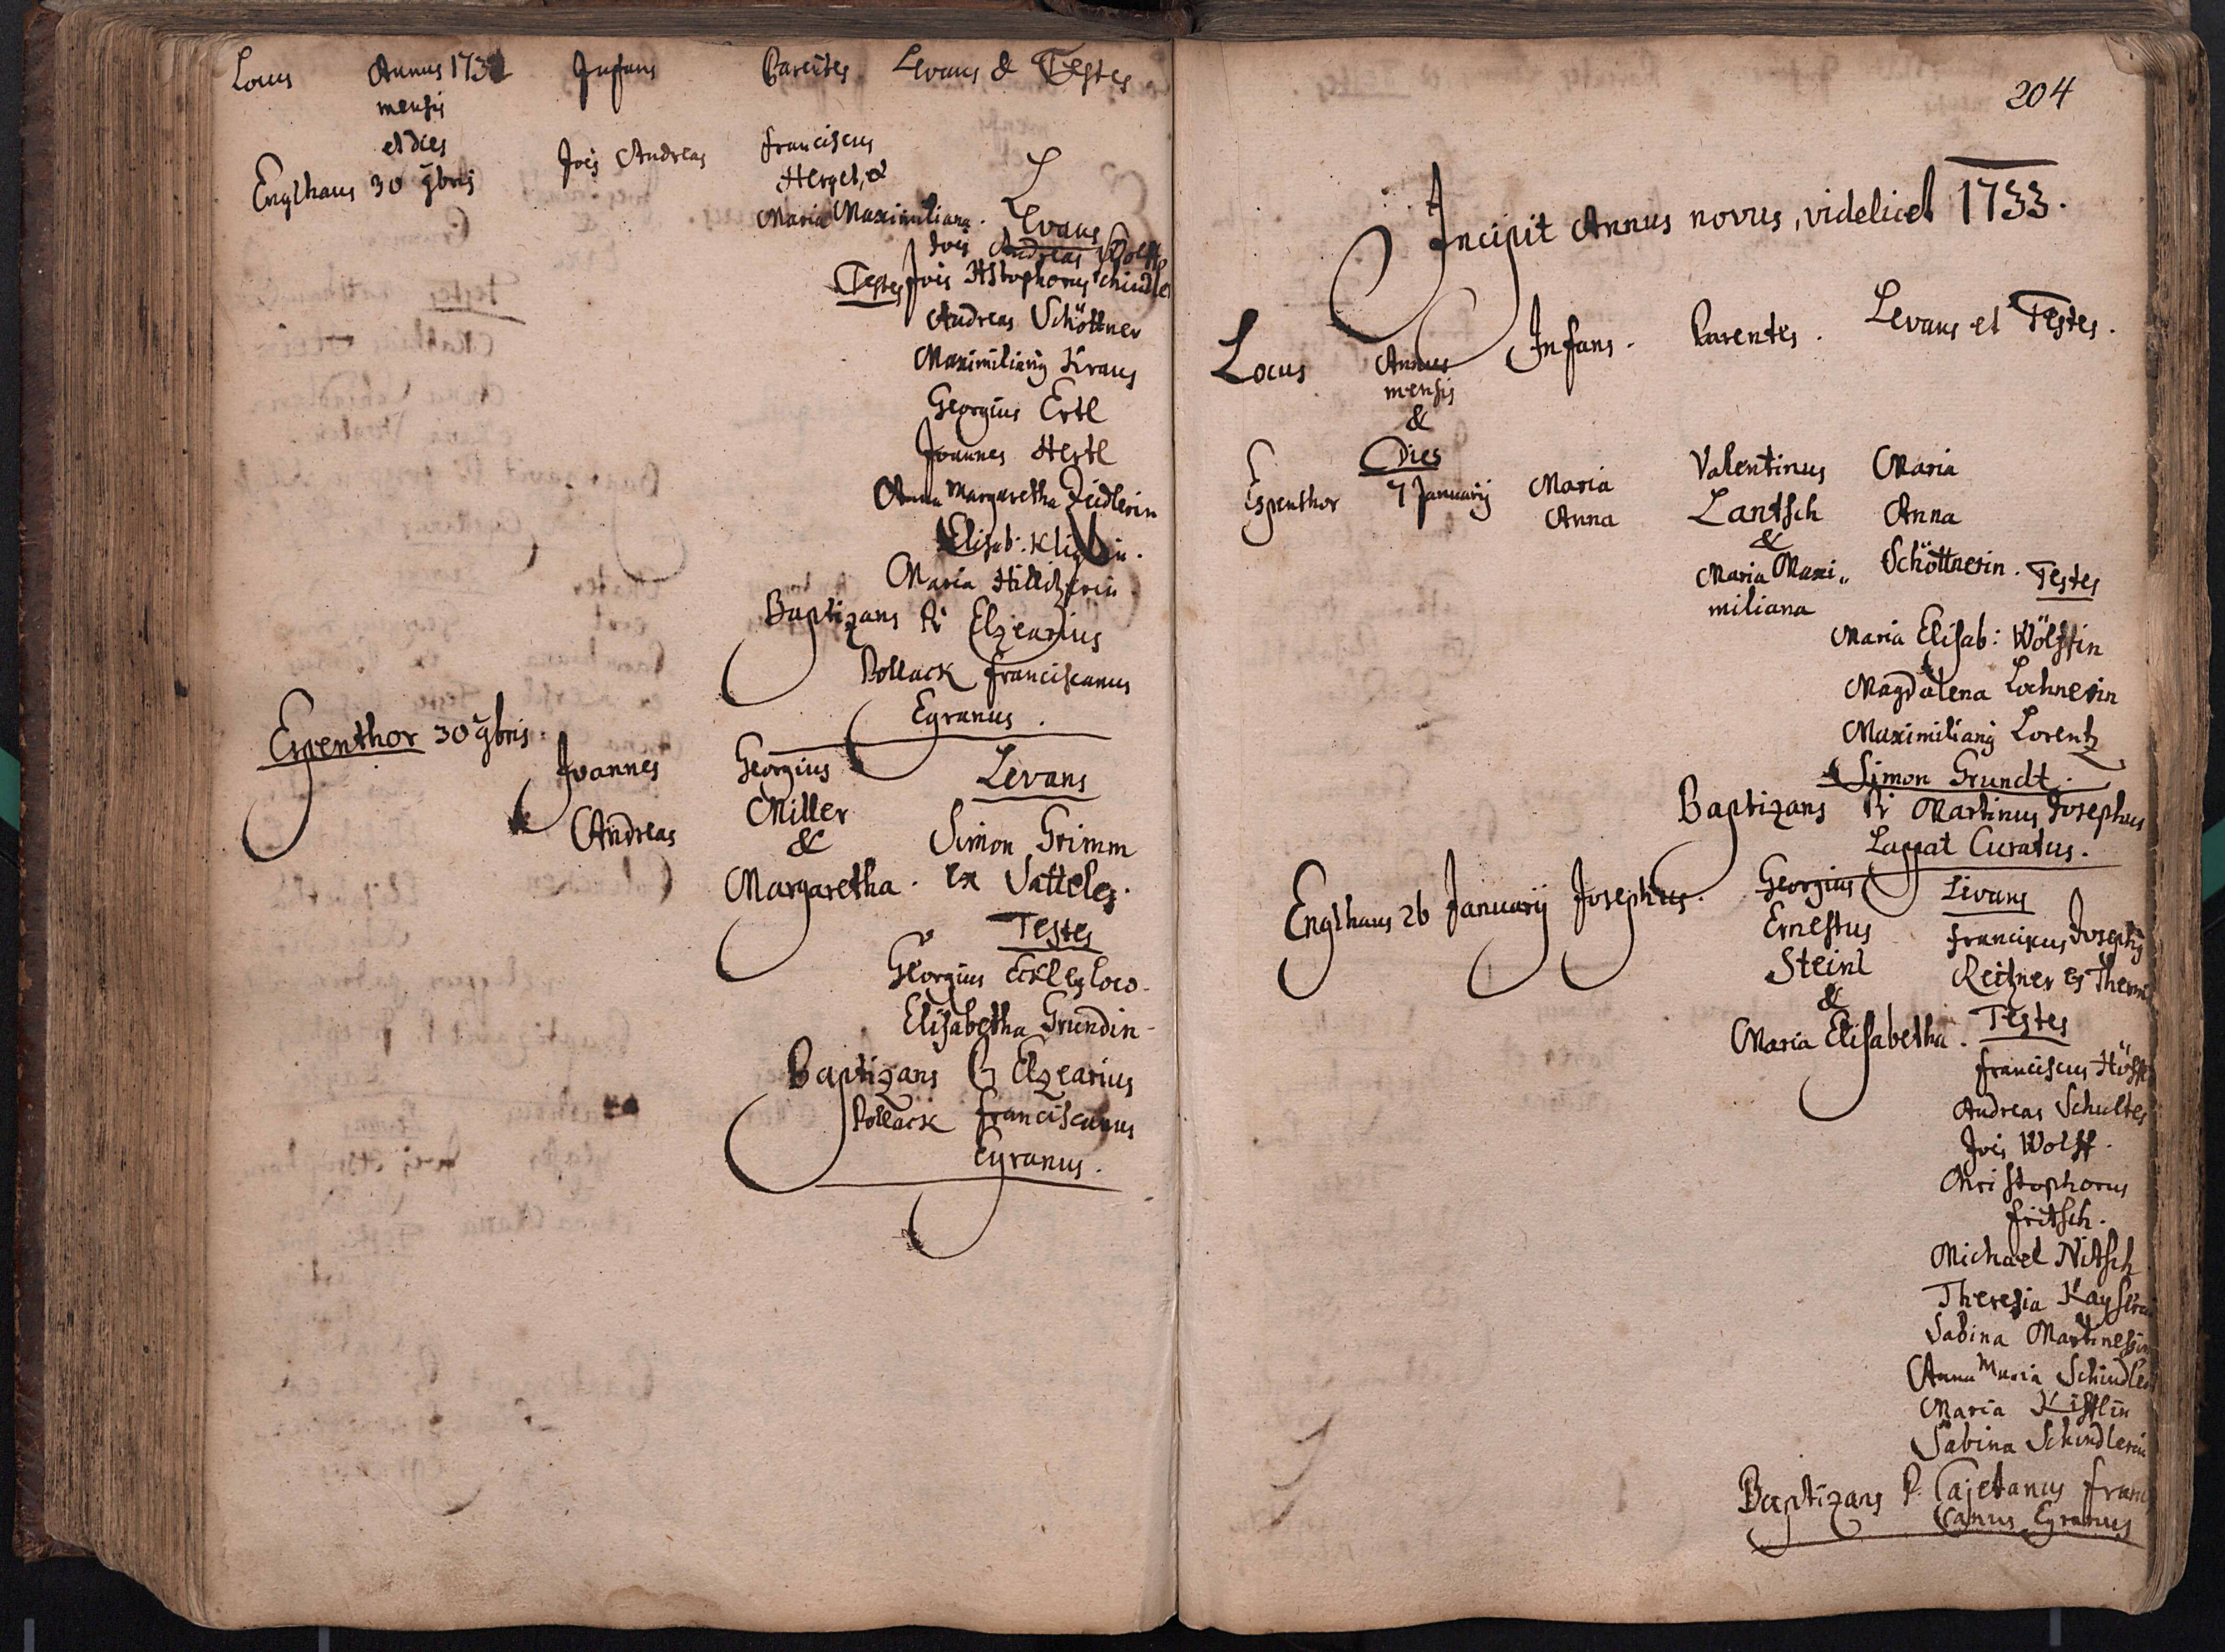 Locus Annus 1732 Infans Parentes Levans & Testes
mensis
et dies
Englhaus 30 9bris Jois Andreas Franciscus
Hergel, &
Maria Maximiliana.
Levans
Jois Andreas Wolff
Testes Jois Xstophorus Schindle
Andreas Schöttner
Maximilianus Kraus
Georgius Ertl
Joannes Hertl
Anna Margaretha Zeidlerin
Elisab:
Maria
Baptizans P. Elzearius
Pollack Franciscanus
Egranus.
Espenthor 30 9bris.
Joannes Georgius Levans
Andreas Miller Simon Grimm
&
Margaretha. ex Satteles.
Testes
Georgius ex loco.
Elisabetha Grundin
Baptizans P. Elzearius
Pollack Franciscanus
Egranus.
204
Incipit Annus novus, videlicet 1733.
Locus Annus Infans. Parentes. Levans et Testes.
mensis
&
Dies
Espenthor 7 Januarij Maria Valentinus Maria
Anna Lantsch Anna
& Schöttnerin. Testes
Maria Maxi„
miliana
Maria Elisab: Wölffin
Magdalena Lochnerin
Maximilianus Lorentz
Simon Grundt.
Baptizans P. Martinus Josephus
Lappat Curatus.
Englhaus 26 Januarij Josephus. Georgius Levans
Ernestus Franciscus Josephus
Steinl Reitzner ex
&
Maria Elisabetha. Testes
Franciscus
Andreas Schultes
Jois Wolff.
Christophorus
Fritsch.
Michael Nitsch
Theresia
Sabina
Anna Maria
Maria
Sabina Schindlerin
Baptizans P. Cajetanus Fran
canus Egranus